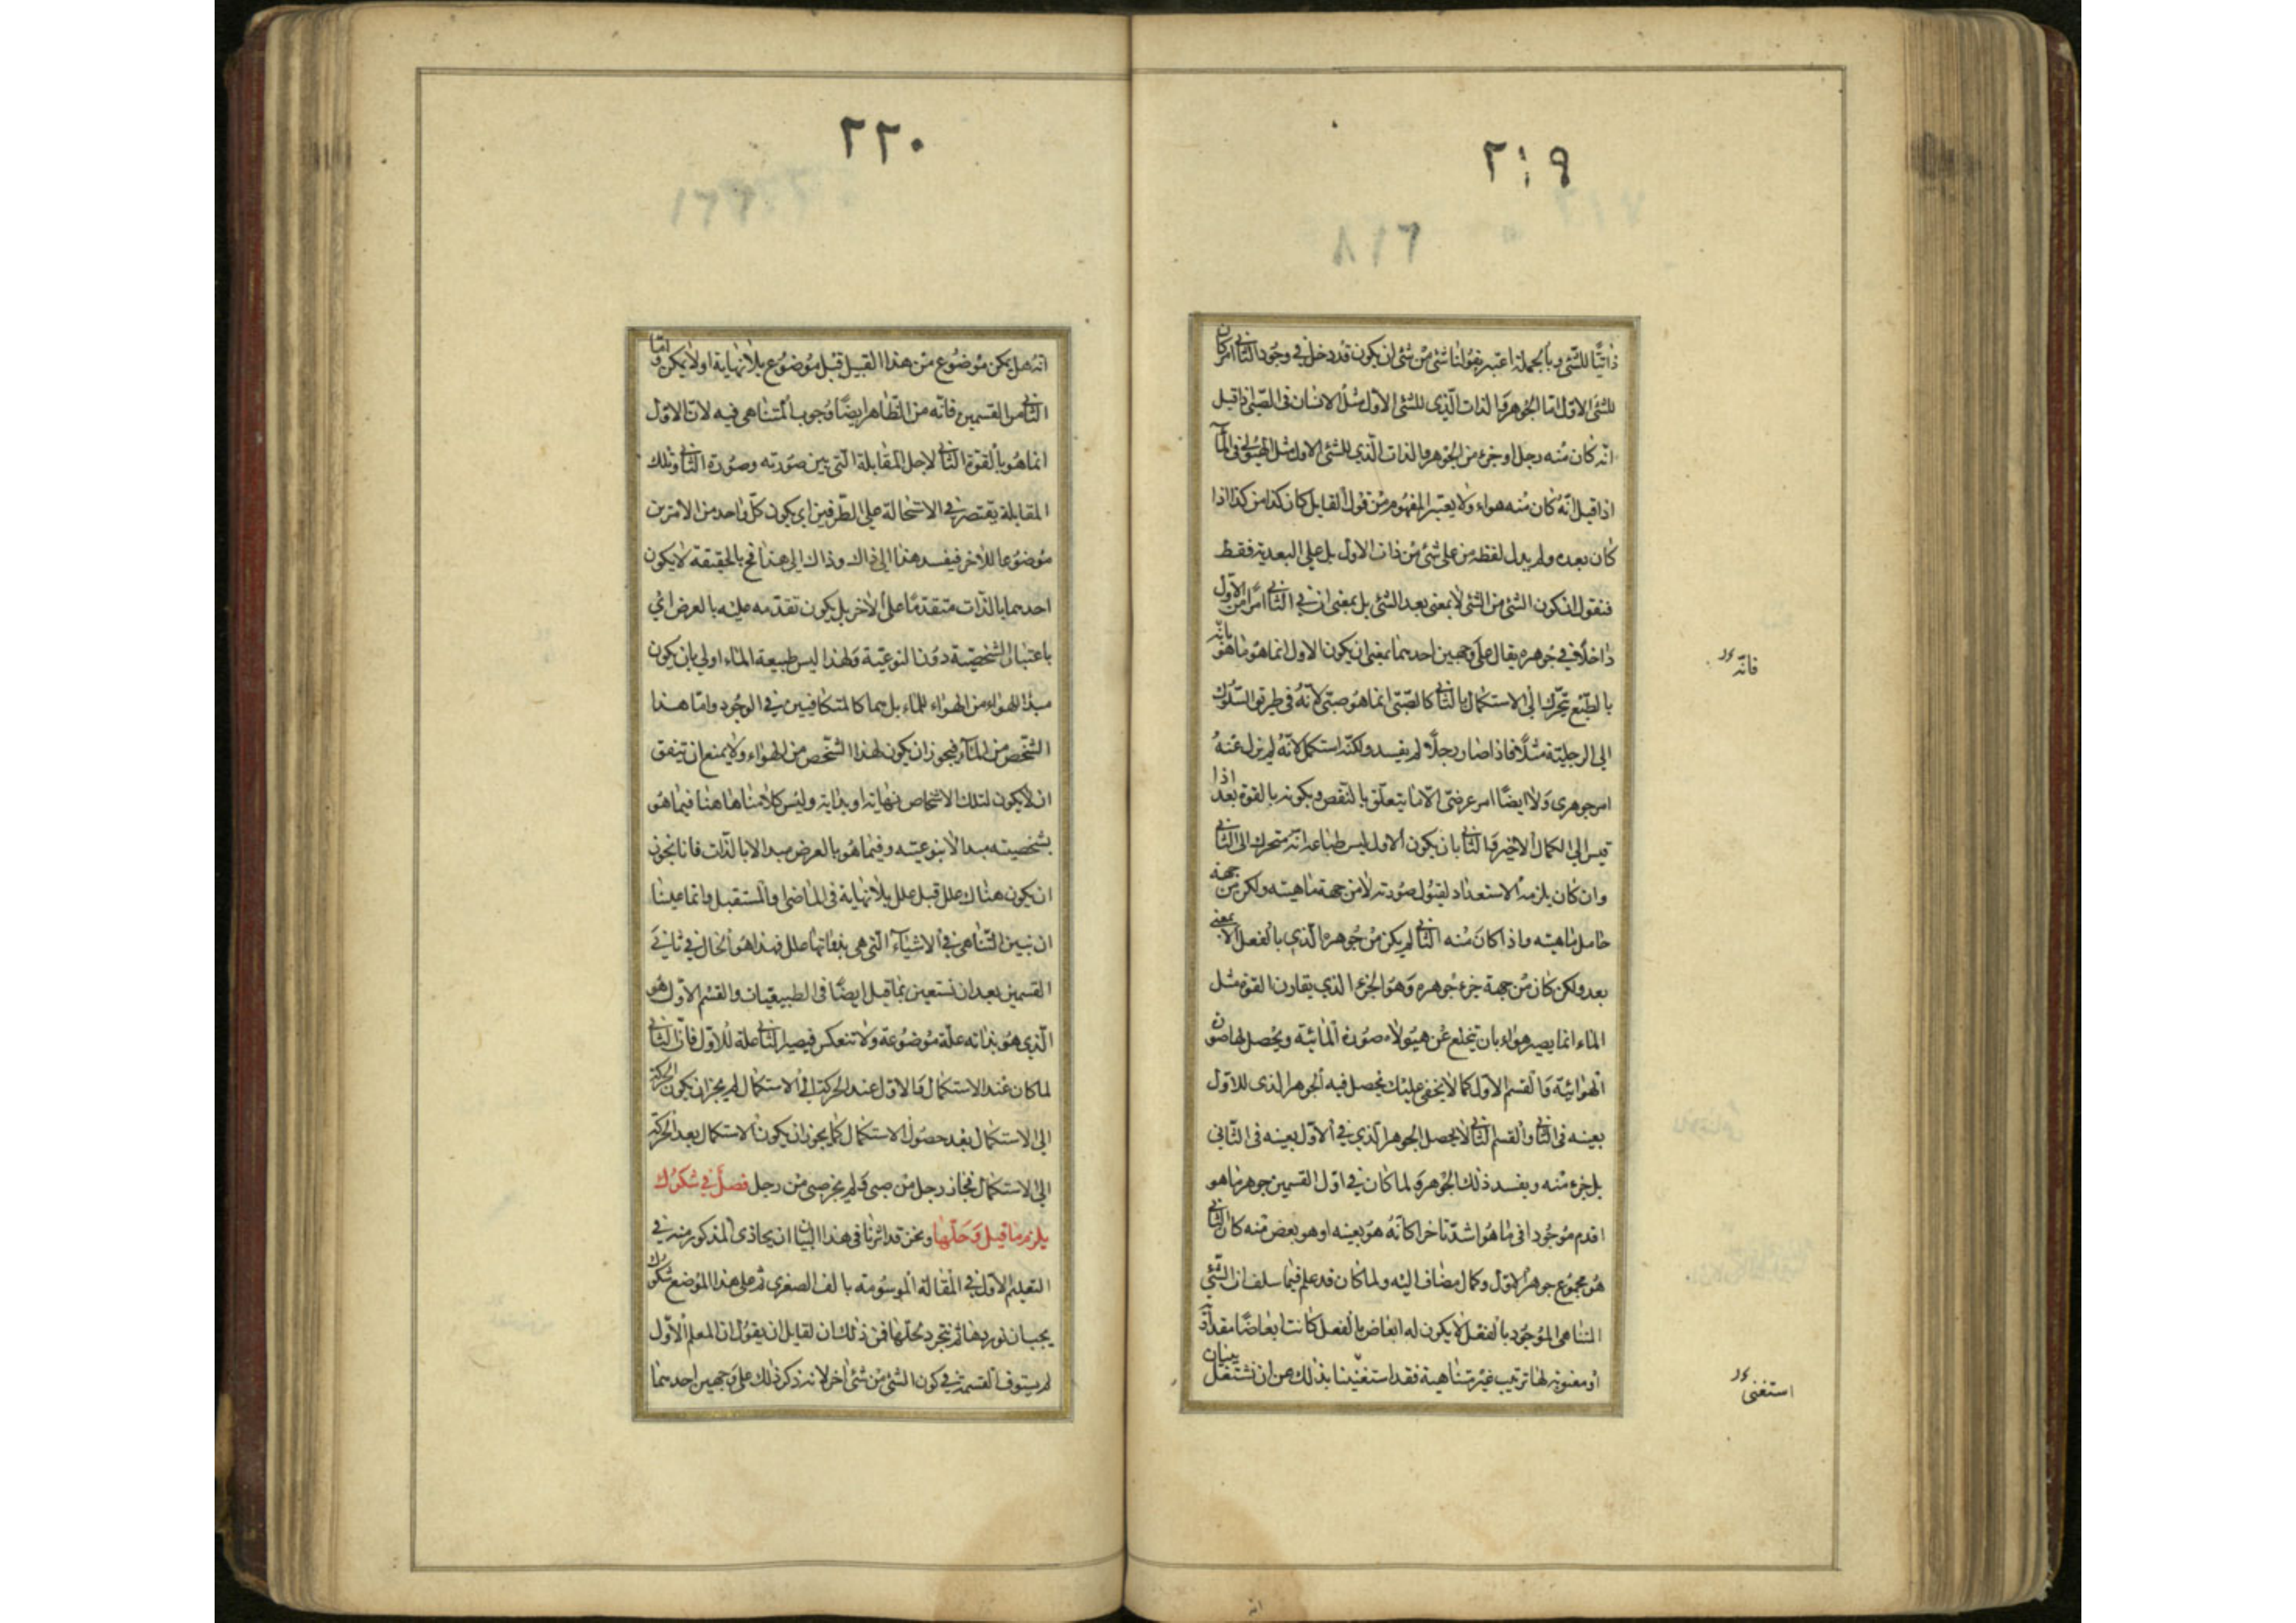 ٢١٩
ذاتيًّا للشئ وبالجملة اعتبر بقولنا شئ من شئ ان يكون قد دخل في وجود الثاني امر كان
للشئ الاول اما الجوهر والذات الذي للشئ الاول مثل الانسان في الصبي اذا قيل
انه كان منه رجل او جزء من الجوهر والذات الذي للشئ الاول مثل الهيولي في الماء
اذا قيل انه كان منه هواء ولا يعتبر المفهوم من قول القايل كان كذا من كذا اذا
كان بعده ولم يدل لفظه من على شئ من ذات الاول بل على البعدية فقط
فنقول ان كون الشئ من الشئ لا بمعنى بعد الشئ بل بمعنى ان في الثاني امرا من الاول
داخلا في جوهره يقال على وجهين احدهما بمعنى ان يكون الاول انما هو ما هو بانه
فانه
بالطبع يتحرك الى الاستكمال بالثاني كالصبي انما هو صبي لانه في طريق السلوك
الى الرجلية مثلا فاذا صار رجلا لم يفسد ولكنه استكمل لانه لم يزل عنه
امر جوهرى ولا ايضا امر عرضى الا ما يتعلق بالنقص وبكونه بالقوة بعد اذا
قيس الى الكمال الاخير والثاني بان يكون الاول ليس طباعه انه متحرك الى الثاني
وان كان يلزمه الاستعداد لقبول صورته لا من جهة ماهيته ولكن من جهة
حامل ماهيته واذا كان منه الثاني لم يكن من جوهره الذي بالفعل الا بمعنى
بعد ولكن كان من جهة جزء جوهره وهو الجزء الذي يقارن القوة مثل
الماء انما يصير هواء بان تنخلع عن هيولاه صورة المائية ويحصل لها صورة
الهوائية والقسم الاول كما لا يخفى عليك يحصل فيه الجوهر الذى للاول
بعينه فى الثاني والقسم الثاني لا يحصل الجوهر الذي في الاول بعينه فى الثاني
بل جزء منه ويفسد ذلك الجوهر ولما كان في اول القسمين جوهر ما هو
اقدم موجودا فى ما هو اشد تاخرا كانه هو بعينه او هو بعض منه كان الثاني
هو مجموع جوهر الاول وكمال مضاف اليه ولما كان قد علم فيما سلف ان الشئ
المتناهى الموجود بالفعل لا يكون له ابعاض بالفعل كانت ابعاضا مقدارية
او معنوية لها ترتيب غير متناهية فقد استغنينا بذلك عن ان نشتغل ببيان
استغنى
٢٢٠
انه هل يمكن موضوع من هذا القبيل قبل موضوع بلا نهاية او لا يمكن واما
الثاني من القسمين فانه من الظاهر ايضا وجوب المتناهى فيه لان الاول
انما هو بالقوة الثاني لاجل المقابلة التي بين صورته وصورة الثاني وتلك
المقابلة يقتصر في الاستحالة على الطرفين اى يكون كل واحد من الامرين
موضوعا للاخر فيفسد هذا الى ذاك وذاك الى هذا فح بالحقيقة لا يكون
احدهما بالذات متقدما على الاخر بل يكون تقدمه عليه بالعرض اى
باعتبار الشخصية دون النوعية ولهذا ليس طبيعة الماء اولى بان يكون
مبدأ للهواء من الهواء للماء بل هما كالمتكافيين في الوجود واما هذا
الشخص من الماء فيجوز ان يكون لهذا الشخص من الهواء ولا يمنع ان يتفق
ان لا يكون لتلك الاشخاص نهاية او بداية وليس كلامنا هاهنا فيما هو
بشخصيته مبدا لا بنوعيته وفيما هو بالعرض مبدا لا بالذات فانا نجوز
ان يكون هناك علل قبل علل بلا نهاية فى الماضى والمستقبل وانما علينا
ان نبين التناهى في الاشياء التي هي بذواتها علل فهذا هو الحال في ثاني
القسمين بعد ان نستعين بما قيل ايضا فى الطبيعيات والقسم الاول هو
الذي هو بذاته علة موضوعة ولا تنعكس فيصير الثاني علة للاول فان الثاني
لما كان عند الاستكمال والاول عند الحركة الى الاستكمال لم يجز ان يكون الحركة
الى الاستكمال بعد حصول الاستكمال كما يجوز ان يكون الاستكمال بعد الحركة
الى الاستكمال فجاز رجل من صبى ولم يجز صبى من رجل فصل في شكوك
يلزم ما قيل وحلها ونحن قد اثرنا فى هذا البيان ان يحاذى المذكور منه في
التعليم الاول في المقالة الموسومة بالف الصغرى ثم على هذا الموضع شكوك
يجب ان نوردها ثم نتجرد لحلها فمن ذلك ان لقايل ان يقول ان المعلم الاول
لم يستوف القسمة في كون الشئ من شئ اخر لانه ذكر ذلك على وجهين احدهما